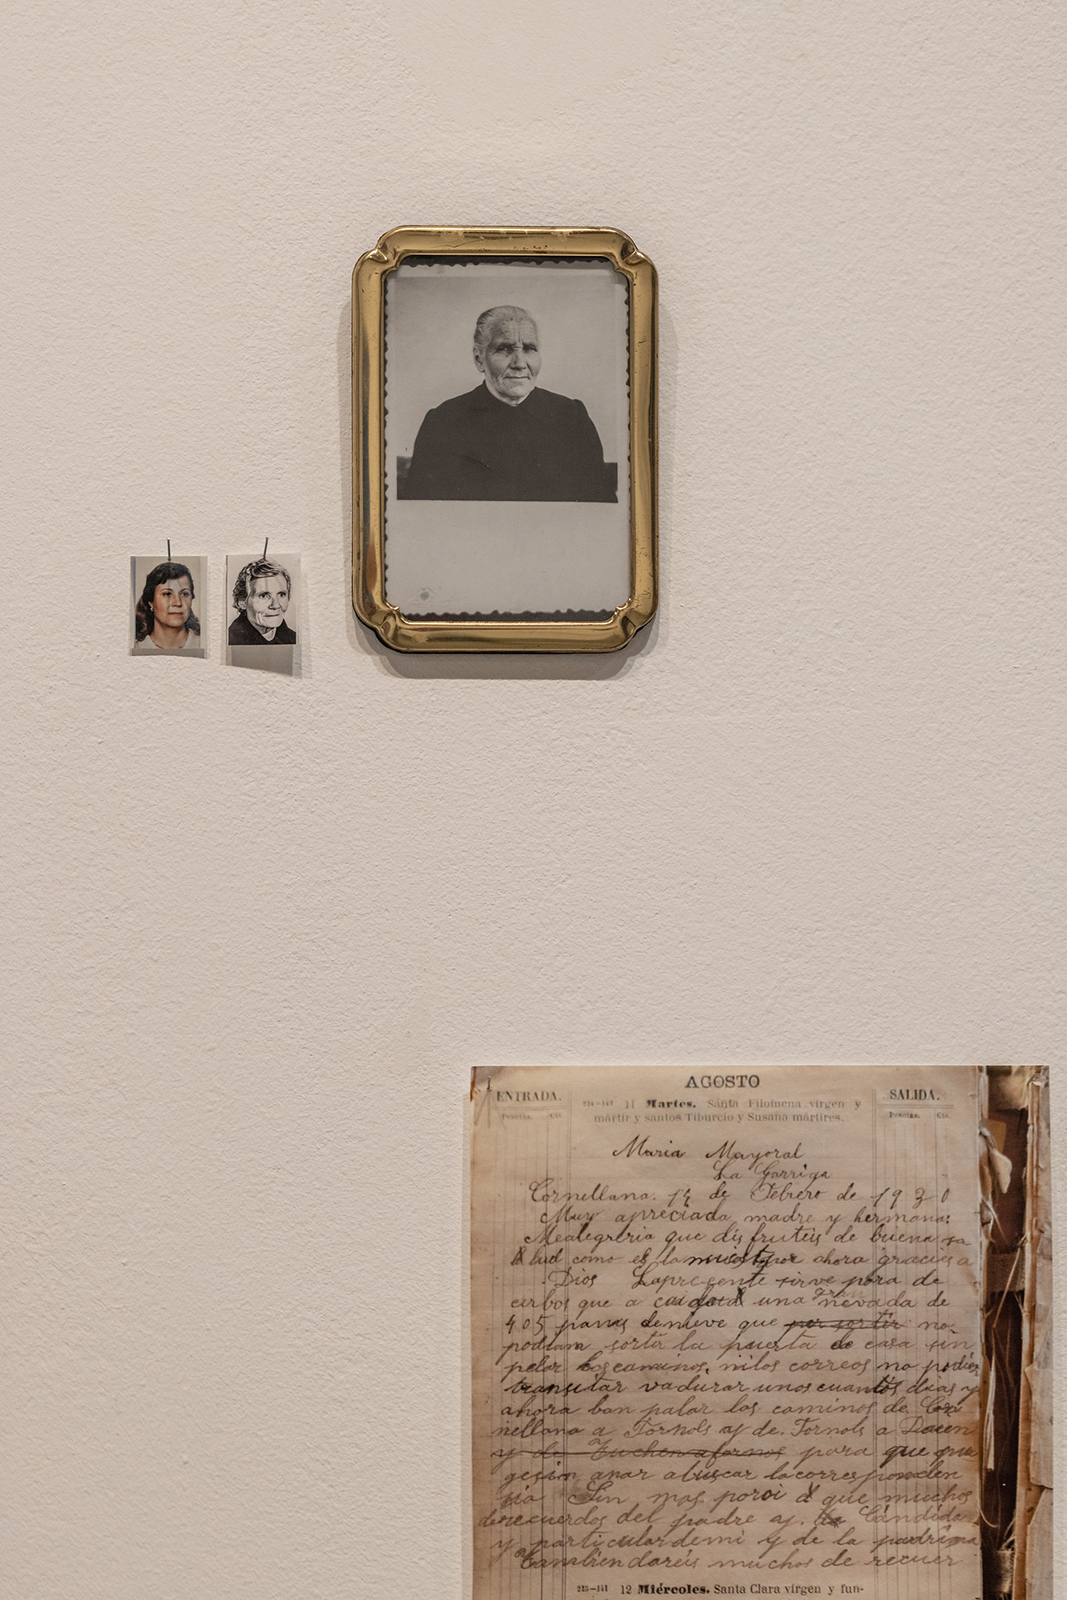 AGOSTO
ENTRADA. SALIDA.
Pesetas. Cts. 11 Martes. Santa Filomena virgen y Pesetas. Cts.
mártir y santos Tiburcio y Susana mártires.
Maria Mayoral
La Garriga
Cornellana. 14 de Febrero de 1930
Muy apreciada madre y hermana:
Mealegreria que disfruteis de buena sa
lud como es la por ahora gracias a
Dios Lapresente sirve para de
cirbos que a una nevada de
405 panas denieve que no
podiam sortir la puerta de casa sin
pelar los caminos, nilos correos no
transitar unos cuantos dias y
ahora ban palar los caminos de Cor
nellana a Fornols aj de. Fornols a
y para que
anar abuscar lacorresponden
sia Sin mas poroi que muchos
derecuerdos del padre aj. Candida
y particulardemi y de la padrina
Tamblien dareis muchos de recuer
12 Miércoles. Santa Clara virgen y fun-